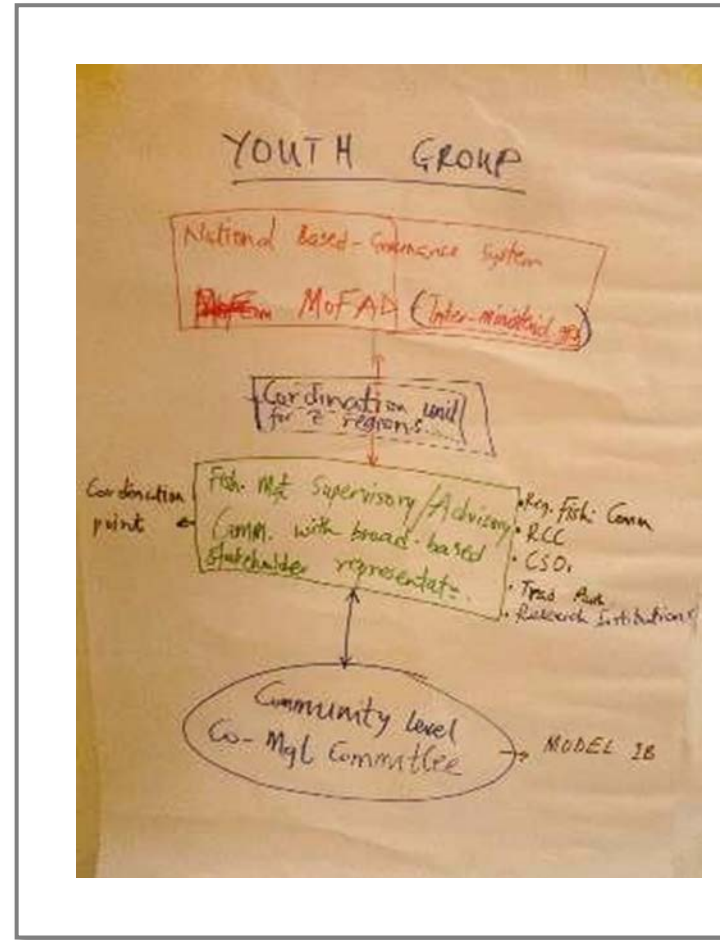 YOUTH GROUP
National Based-Governance System
MoFAD (Inter-ministerial
Cordination unit
for 2 regions...
Cordination
point
Fish. Mgt Supervisory/Advisory
Comm. with broad-based
stakeholder representat.
• Reg. Fish. Comm
• RCC
• CSOs
• Trad Auth
• Research Institutions
Community Level
Co-Mgt Committee
MODEL 1B